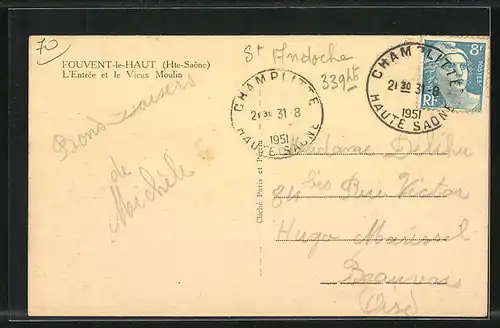 70
FOUVENT-le-HAUT (Hte-Saône)
L'Entrée et le Vieux Moulin
St Andoche
339 ht
CHAMPLITTE
21 30 31-8
1951
HAUTE SAONE
CHAMPLITTE
21 30 31-8
1951
HAUTE SAONE
8F
POSTES
RF
Bons baisers
de
Michèle
Cliché Paris et Parein
Madame
84 bis Rue Victor
Hugo
Beauvais
(Oise)